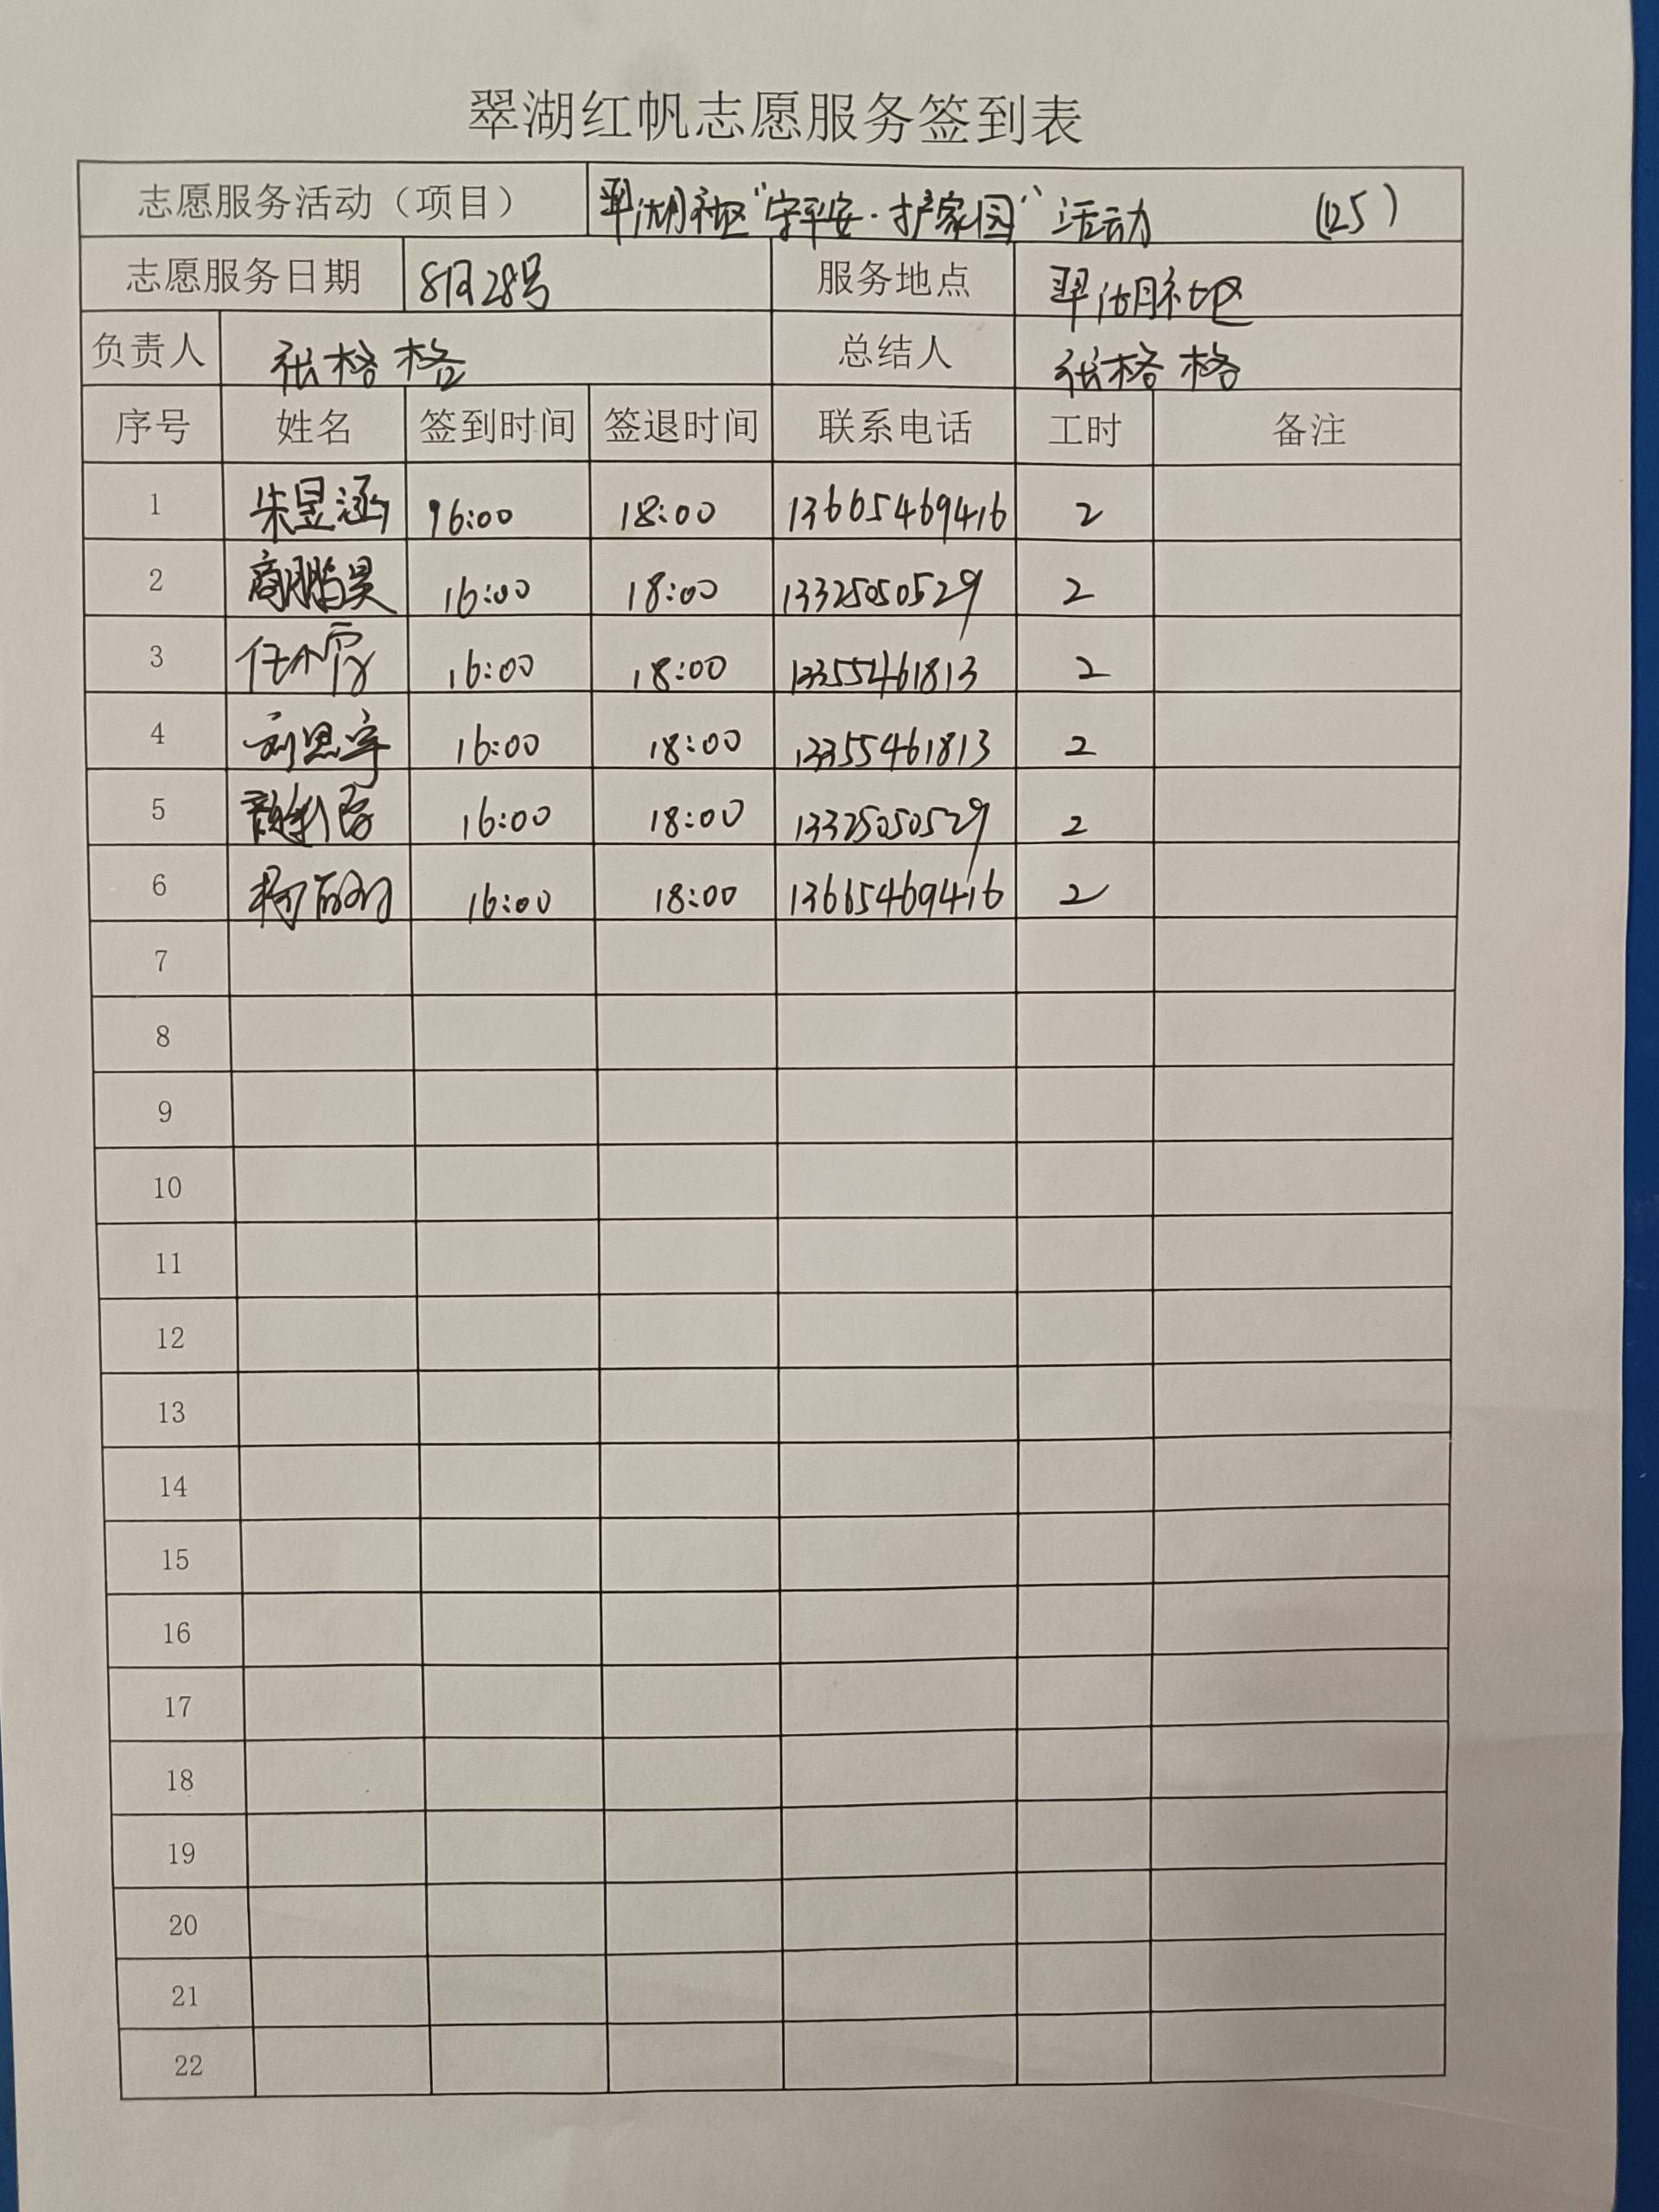 翠湖红帆志愿服务签到表
志愿服务活动（项目） 翠湖社区“守平安·护家园”活动 (125)
志愿服务日期 8月28号 服务地点 翠湖社区
负责人 张格格 总结人 张格格
序号 姓名 签到时间 签退时间 联系电话 工时 备注
1 朱昱涵 16:00 18:00 13665469416 2
2 商鹏昊 16:00 18:00 13325050529 2
3 16:00 18:00 13355461813 2
4 刘思宇 16:00 18:00 13355461813 2
5 16:00 18:00 13325050529 2
6 16:00 18:00 13665469416 2
7
8
9
10
11
12
13
14
15
16
17
18
19
20
21
22